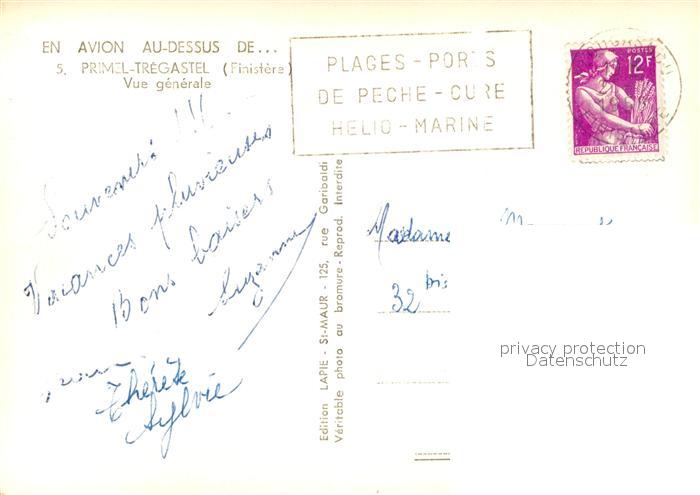 EN AVION AU-DESSUS DE...
5. PRIMEL-TRÉGASTEL (Finistère)
Vue générale
PLAGES - PORTS
DE PECHE - CURE
HELIO - MARINE
POSTES
12F
REPUBLIQUE FRANÇAISE
!!!
Vacances pluvieuses
Bons baisers
Suzanne
Thérèse
Sylvie
Edition LAPIE - St-MAUR - 125, rue Garibaldi
Véritable photo au bromure - Reprod. Interdite
Madame
32 bis
privacy protection
Datenschutz